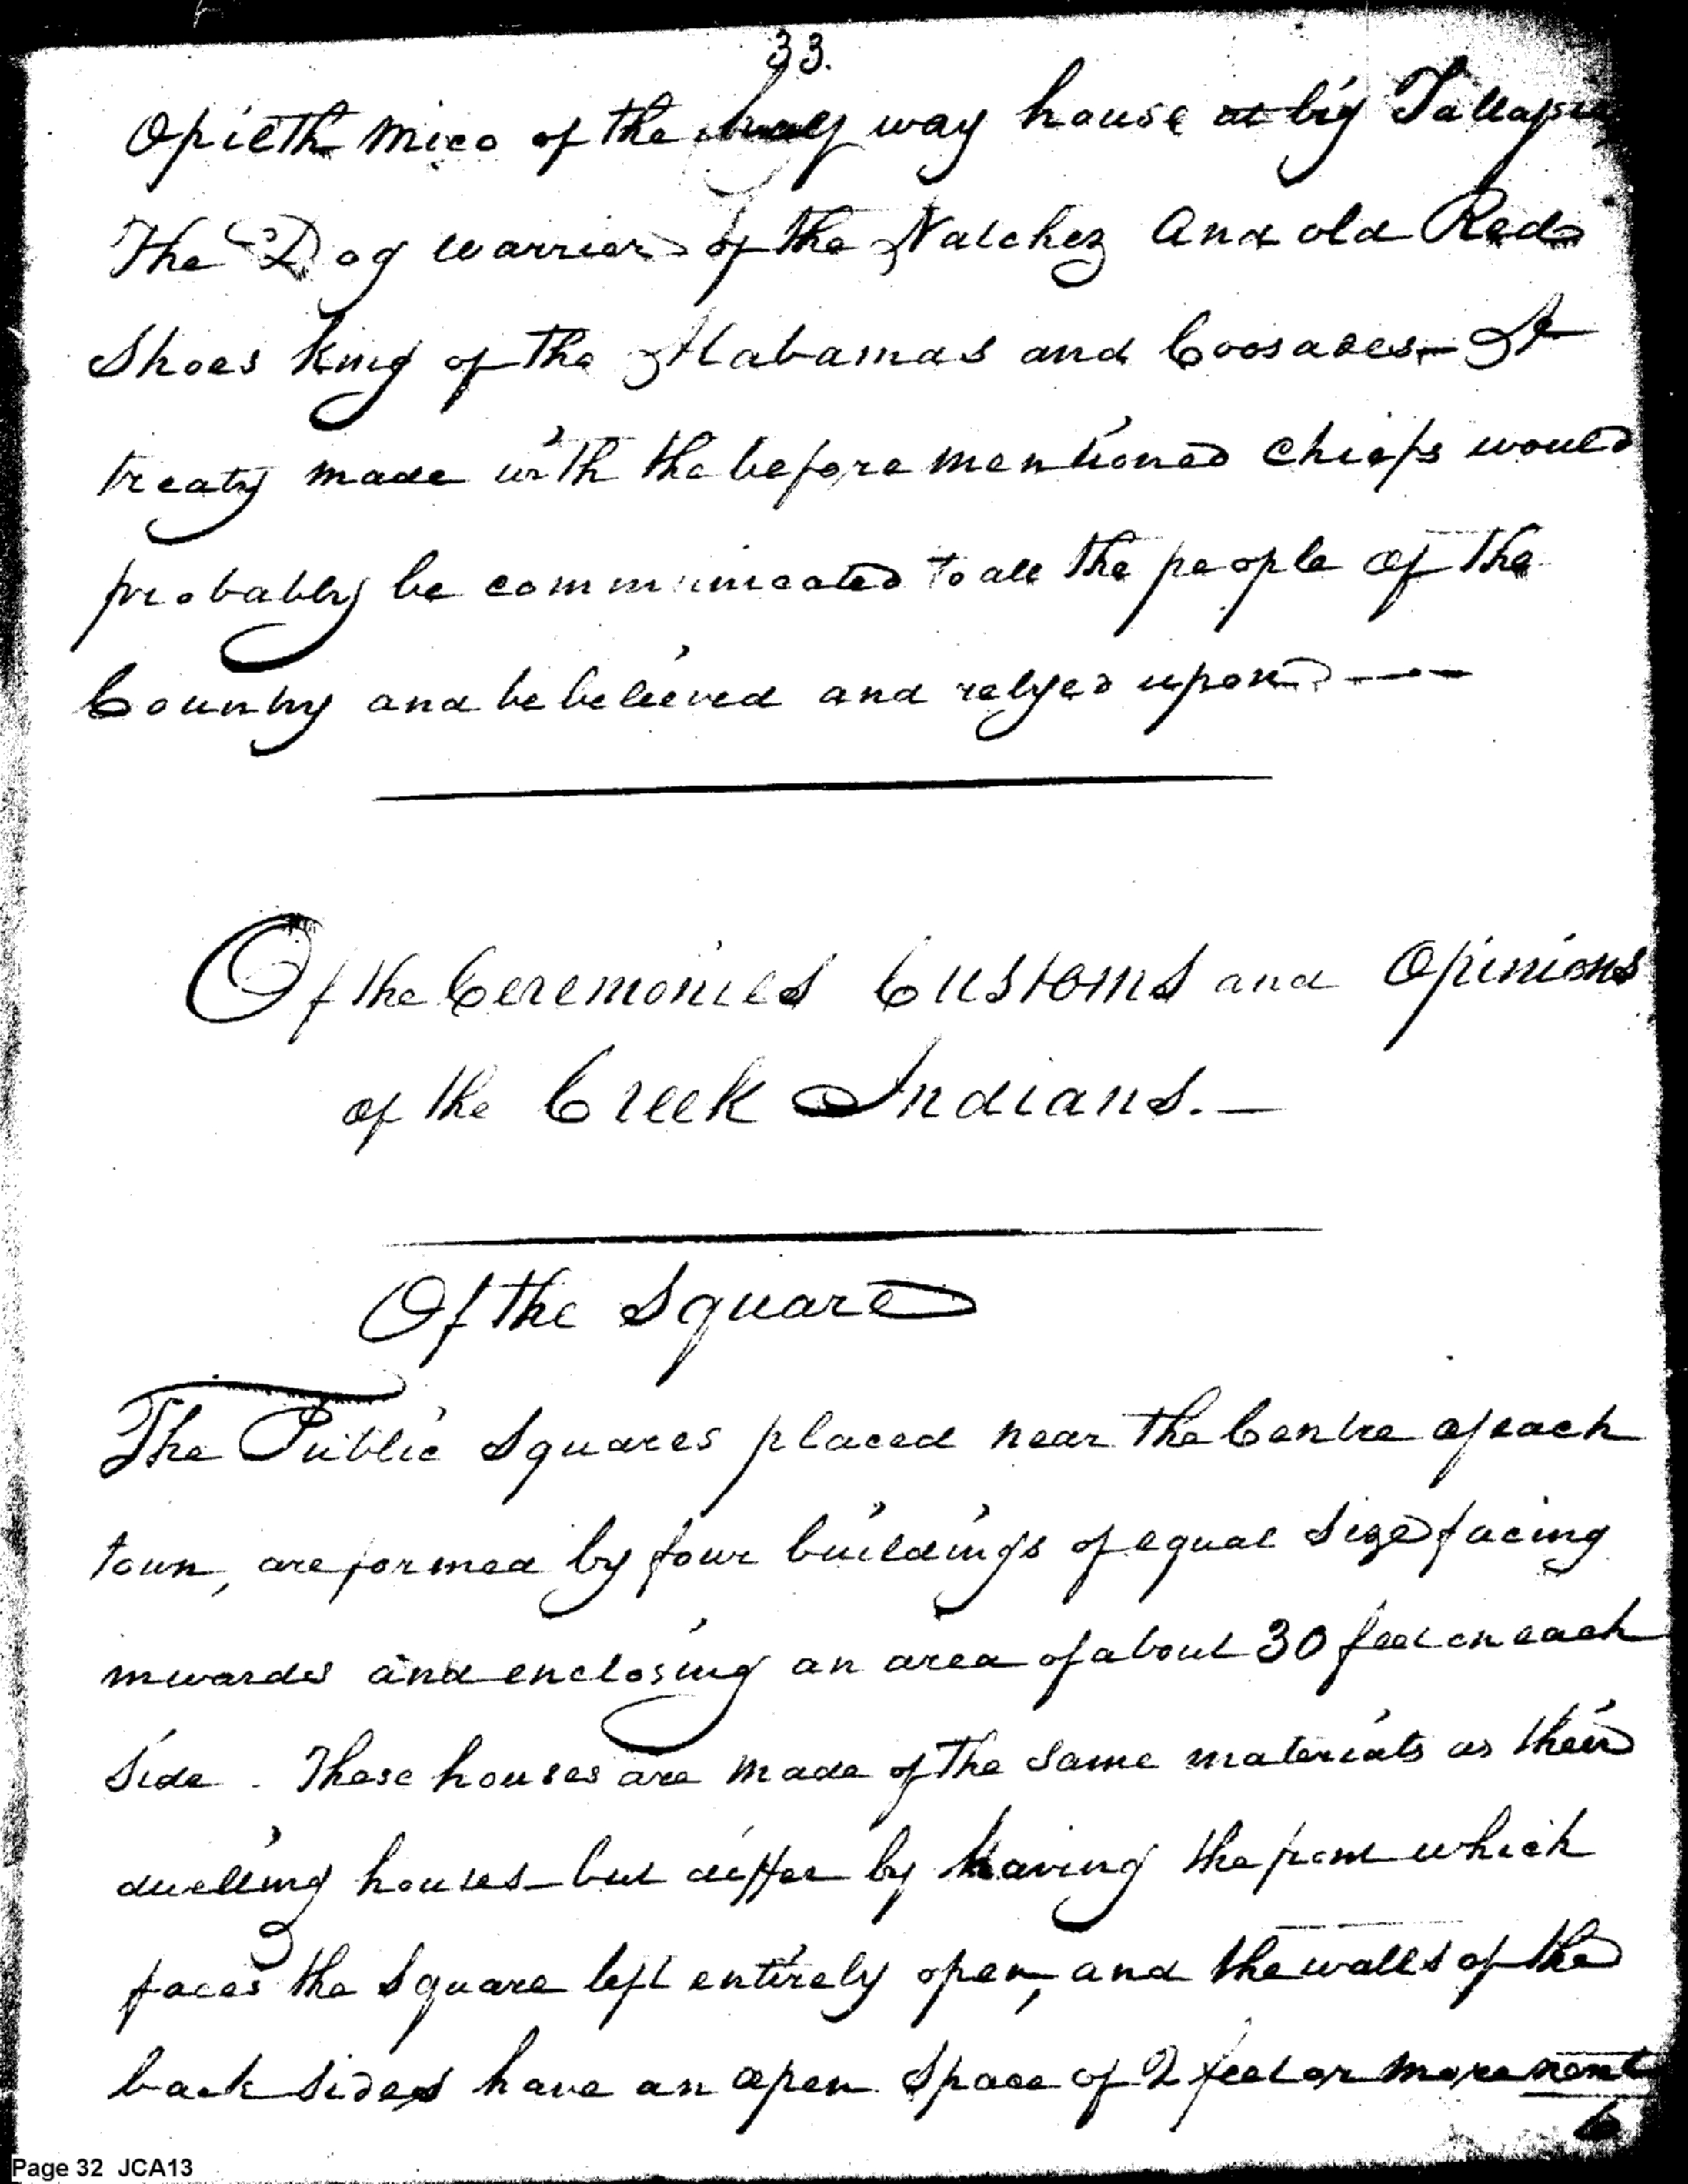 33.
Opieth Mico of the half way house at big Tallapu
The Dog warrior of the Natchez and old Red
Shoes King of the Alabamas and Coosades - A
treaty made with the before mentioned chiefs would
probably be communicated to all the people of the
Country and be believed and relyed upon ----
Of the Ceremonies Customs and Opinions
of the Creek Indians. -
Of the Square
The Public Squares placed near the Centre of each
town, are formed by four buildings of equal size facing
inwards and enclosing an area of about 30 feet on each
side . These houses are made of the same materials as their
dwelling houses - but differ by having the front which
faces the Square left entirely open, and the walls of the
back sides have an open space of 2 feet or more next
Page 32 JCA13